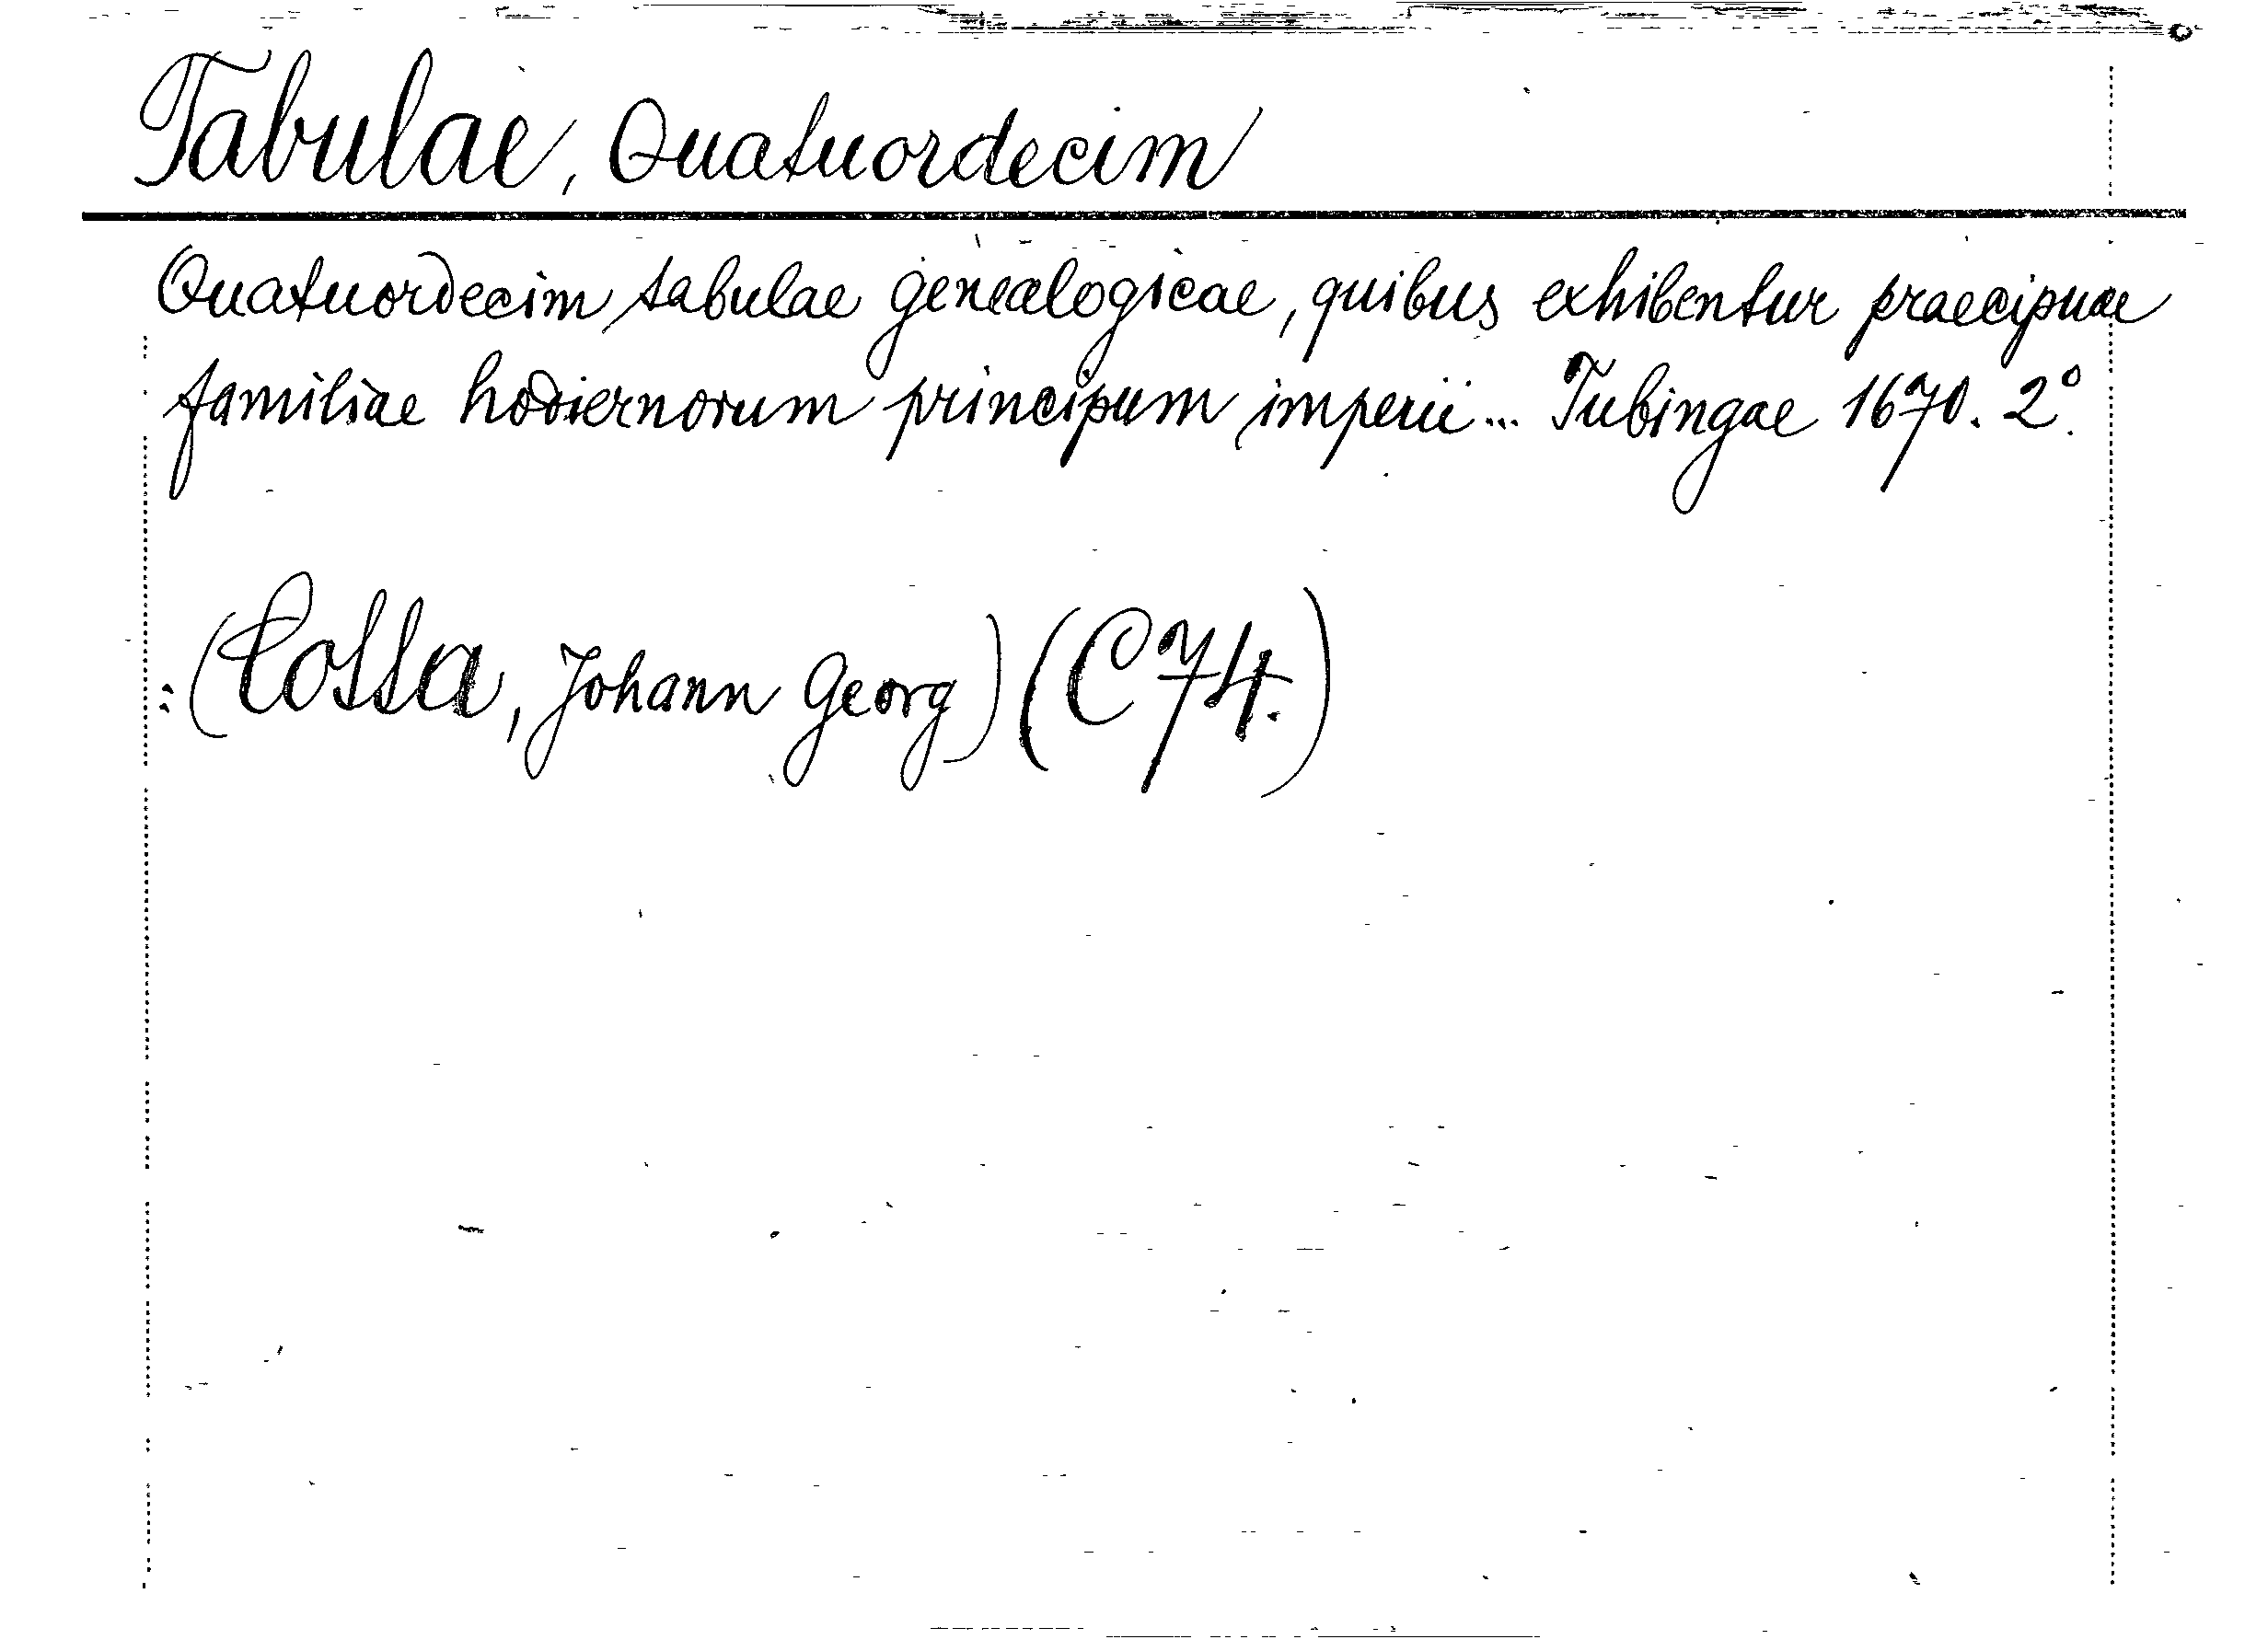 Tabulae, Quatuordecim
Quatuordecim tabulae genealogicae, quibus exhibentur praecipuae
familiae hodiernorum principum imperii... Tubingae 1670. 2°.
:(Cotta, Johann Georg) (C 74.)